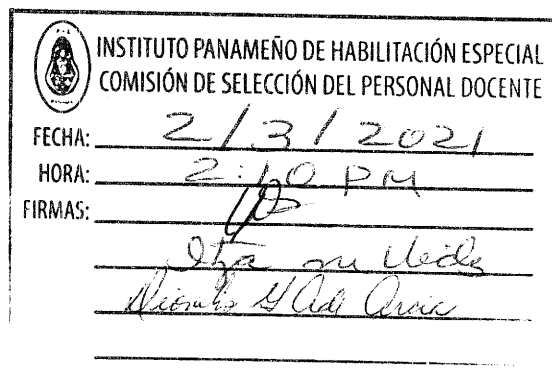 INSTITUTO PANAMEÑO DE HABILITACIÓN ESPECIAL
COMISIÓN DE SELECCIÓN DEL PERSONAL DOCENTE
FECHA: 2/3/2021
HORA: 2:10 PM
FIRMAS:
Itza